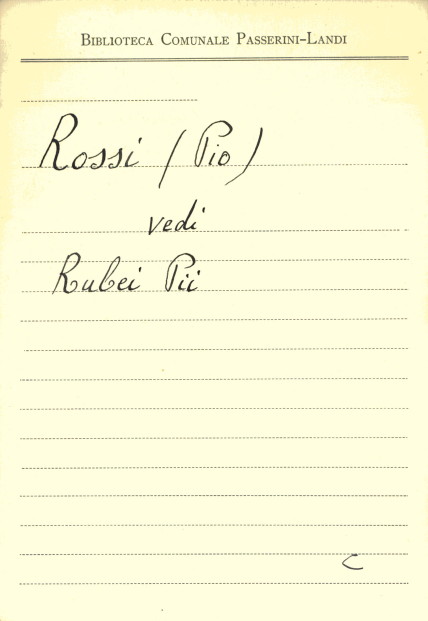 Biblioteca Comunale Passerini-Landi
Rossi (Pio)
vedi
Rubei Pii
C